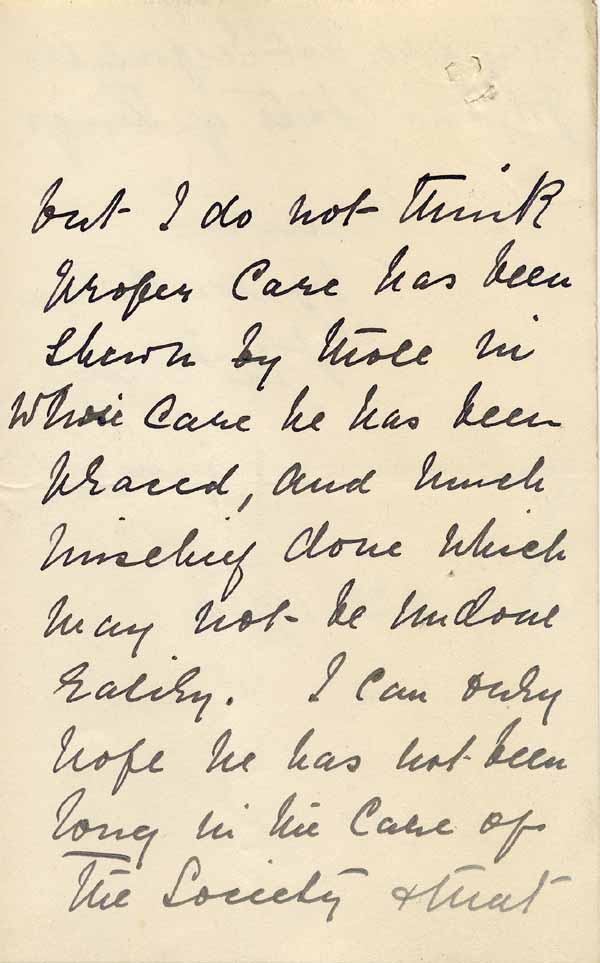 but I do not think
proper care has been
shewn by those in
whose care he has been
placed, and much
mischief done which
may not be undone
easily. I can only
hope he has not been
long in the care of
the Society & that